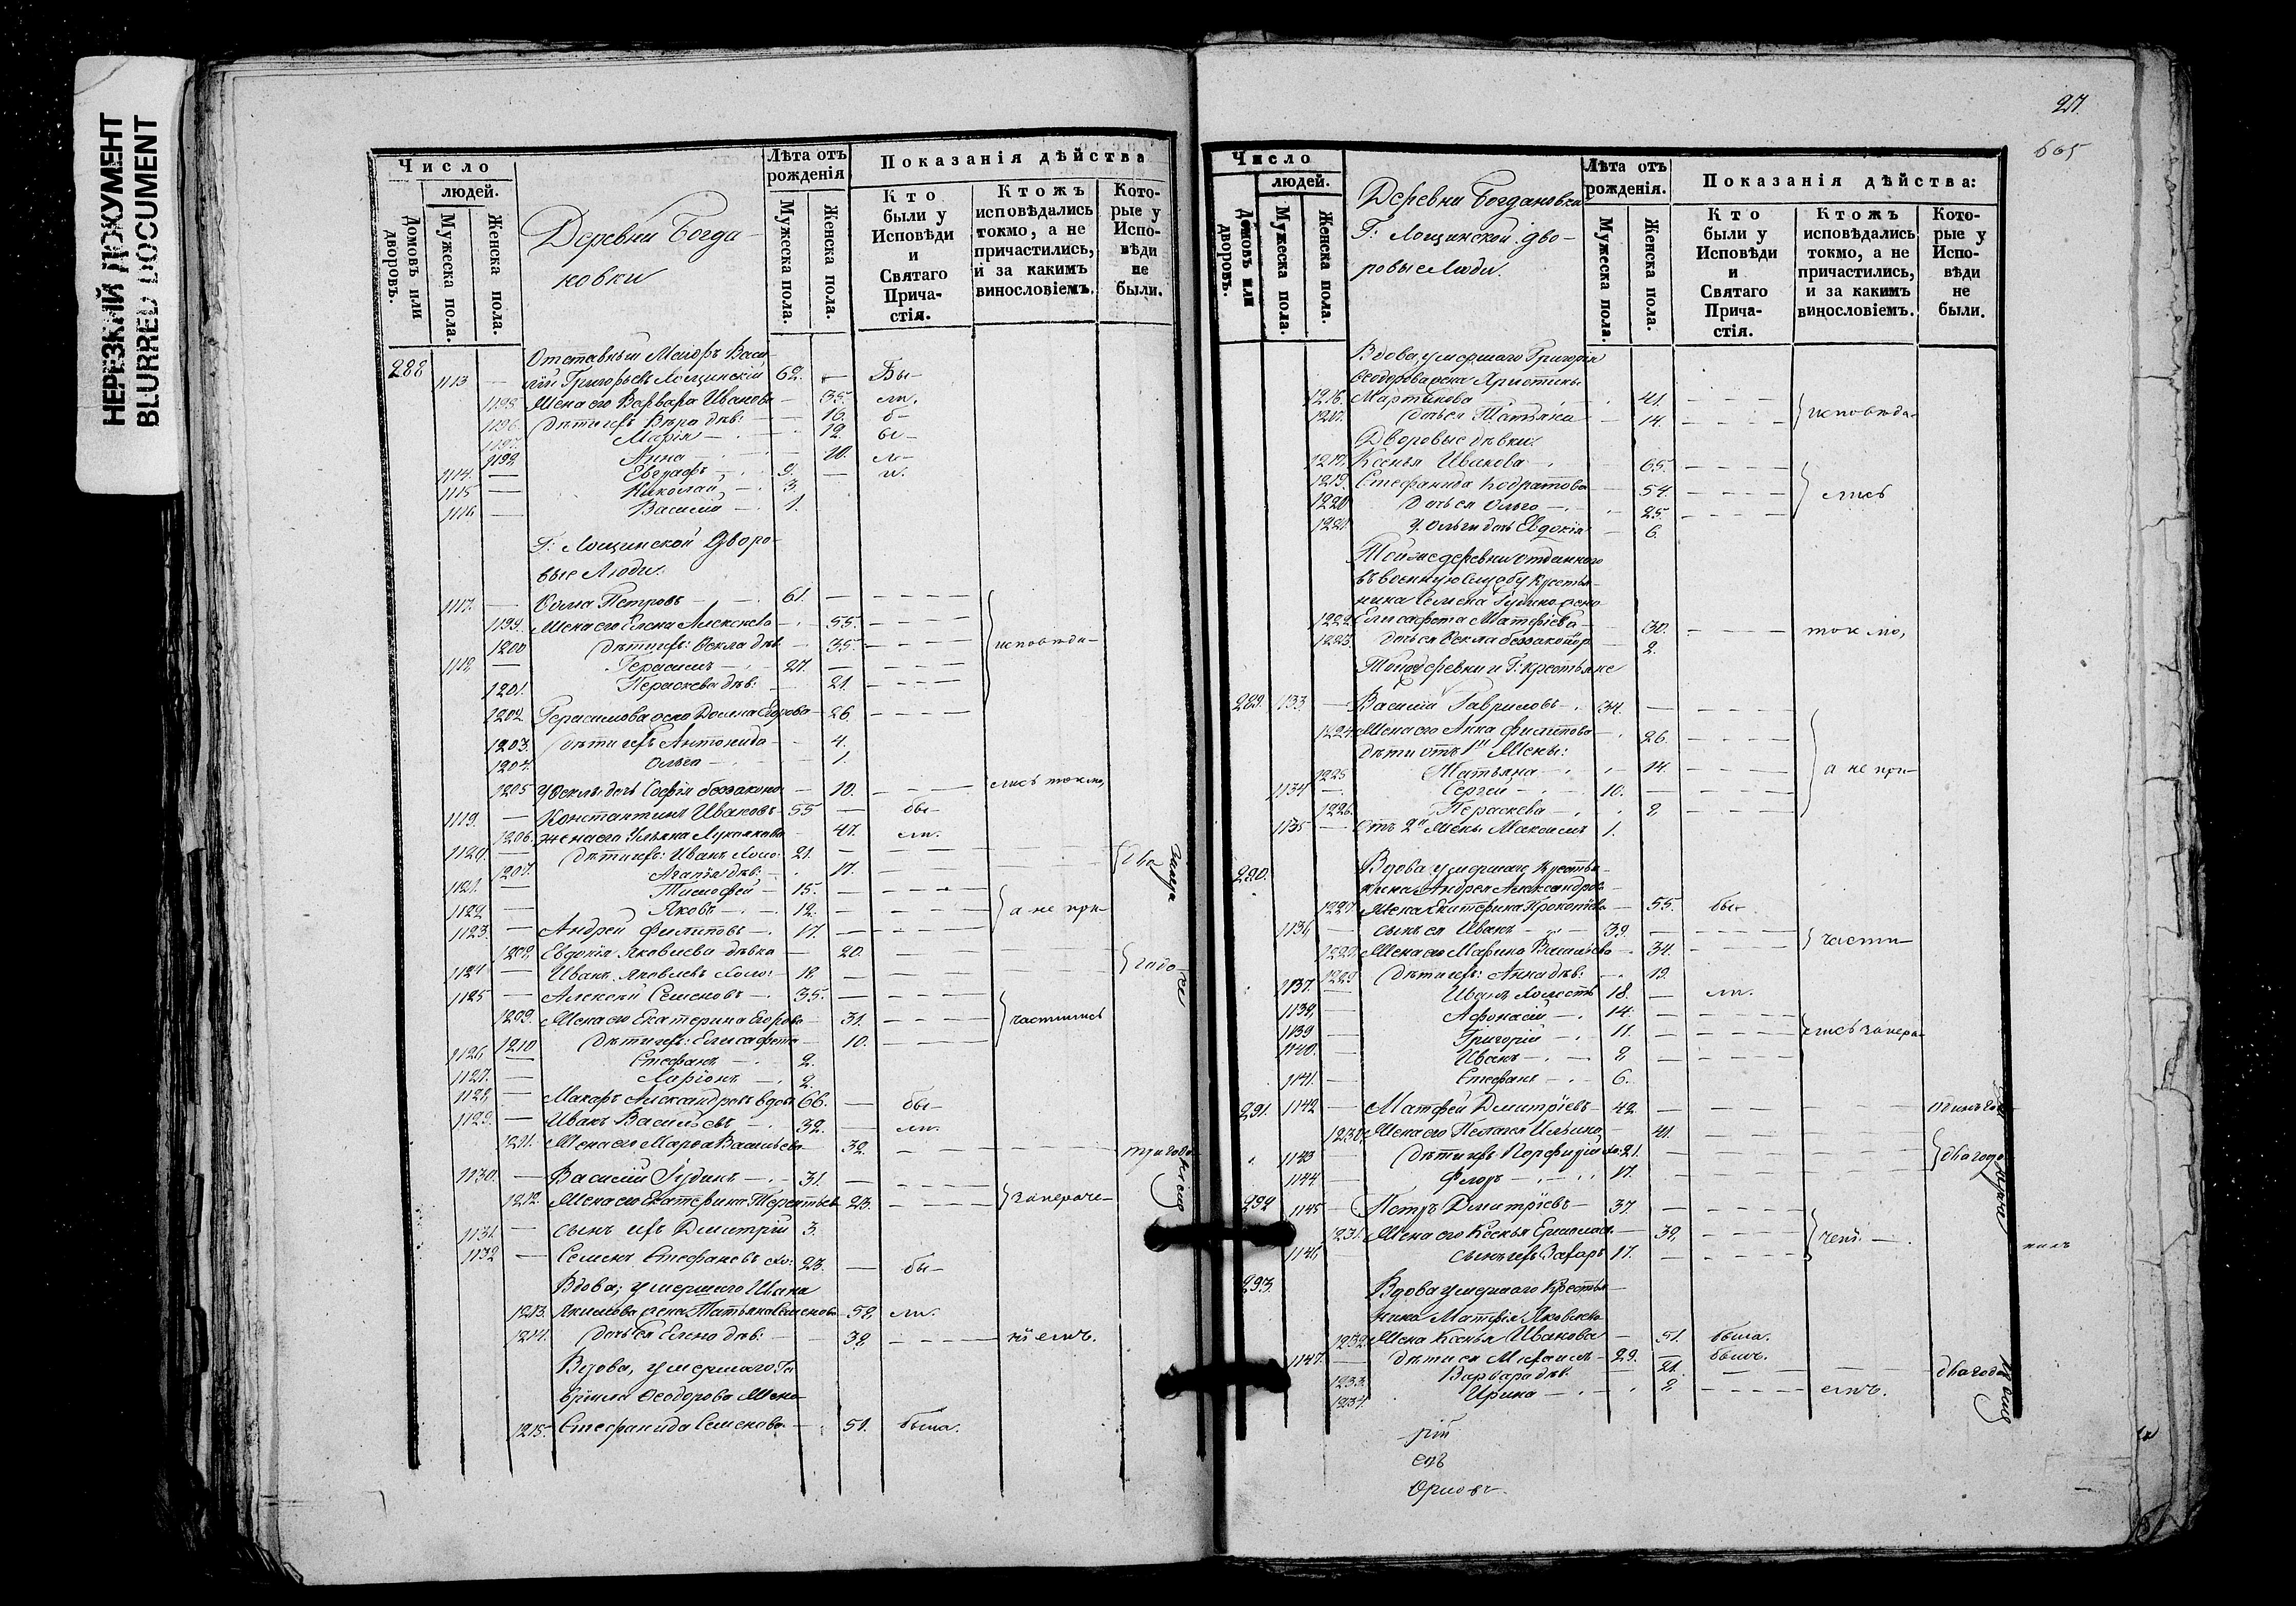 НЕРЕЗКИЙ ДОКУМЕНТ
BLURRED DOCUMENT
Число
людей.
Домовъ или дворовъ.
Мужеска пола.
Женска пола.
Деревни Богда-
новки
Лѣта отъ рожденія
Мужеска пола.
Женска пола.
Показанія дѣйства
Кто были у Исповѣди и Святаго Прича-стія.
Ктожъ исповѣдались токмо, а не причастились, и за какимъ винословіемъ.
Кото-рые у Испо-вѣди не были.
288 Отставный Маіоръ Васи-
1113 — лій Григорьевъ Лощинскій 62. — Бы-
Жена его Варвара Иванова — 35. ли.
1196. Дѣти ихъ Вѣра дѣв: — 16. б-
1197. Марія — 12. ы-
Анна — 10. л-
1114. — Евграфъ — 9. — и.
1115 — Николай — 3.
1116 — Василій — 1.
Г: Лощинской Дворо-
вые Люди.
1117. — Ѳома Петровъ — 61. —
1199. Жена его Елена Алексеева — 55.
1200 Дѣти ихъ: Ѳекла дѣв. — 35. исповѣда-
1118 — Герасимъ — 27. —
1201. Параскева дѣв: — 21.
1202 Герасимова жена Домна Егорова — 26.
1203. Дѣти ихъ Антонида — 4.
1204. Ольга — 1.
1205 У Ѳеклы дочь Софія беззаконо — 10. лись токмо,
1119. — Константинъ Ивановъ 55 — бы-
1206. жена его Ульяна Лукьянова — 47. ли.
1120 — Дѣти ихъ: Иванъ холо: 21. — Два
1207. Агапія дѣв: — 17. —
1121. — Тимофей — 15. —
1122 — Яковъ — 12. — а не при-
1123. — Андрей Филиповъ — 17. —
1208. Евдокія Яковлева дѣвка — 20. —
1124 — Иванъ Яковлевъ холо: 18. — года
1125 — Алексѣй Семеновъ — 35. —
1209. Жена его Екатерина Егорова — 31. частились
1210 Дѣти ихъ: Елисафета — 10.
1126 — Стефанъ — 2.
1127. — Ларіонъ — 2.
1128. — Макаръ Александровъ вдов 66. — бы-
1129. — Иванъ Васильевъ — 32. — ли.
1211. Жена его Марѳа Васильева — 32. три года
1130. — Василій Гудинъ — 31. —
1212. Жена его Екатерина Терентьева 23.
1131 — сынъ ихъ Дмитрій 3.
1132 — Семенъ Стефановъ хо: 23. — бы-
Вдова, умершаго Ивана
1213. Якимова жена Татьяна Семенова — 52 ли.
1214. Дочь ея Елена дѣв: — 32 ніемъ.
Вдова, умершаго Га
вріила Ѳеодорова Жена
1215. Стефанида Семенова — 51. была.
217.
665
Число
людей.
Домовъ или дворовъ.
Мужеска пола.
Женска пола.
Деревни Богдановки
Г: Лощинской дво-
ровые Люди.
Лѣта отъ рожденія.
Мужеска пола.
Женска пола.
Показанія дѣйства:
Кто были у Исповѣди и Святаго Прича-стія.
Ктожъ исповѣдались токмо, а не причастились, и за какимъ винословіемъ.
Кото-рые у Испо-вѣди не были.
Вдова, умершаго Григорія
Ѳеодорова жена Христина
1216. Мартинова — 41.
1217. Дочь ея Татьяна — 14. исповѣда-
Дворовые дѣвки:
Ксенья Иванова — 65.
1219. Стефанида Кодратова — 54. лись
1220 Дочь ея Ольга — 25.
1221. У Ольги дочь Евдокія — 6.
Той же деревни отданнаго
въ военную службу крестья-
нина Семена Гудина жена
1222. Елисафета Матфіева — 30. токмо,
1223. дочь ея Ѳекла беззакон — 2.
Той же деревни и Г: крестьяне
289. 1133 — Василій Гавриловъ — 34. —
1224. Жена его Анна Филипова — 26.
дѣти отъ 1й Жены:
1225 Татьяна — 14. а не при-
1134 — Сергей — 10. —
1226. Параскева — 8
1135 — Отъ 2й жены Максимъ 1.
290. Вдова умершаго Крестья-
нина Андрея Александрова
1227. Жена Екатерина Прокопіева — 55. бы-
1136 — сынъ ея Иванъ — 39. —
1228. Жена его Марина Васильева — 34. части-
1229 Дѣти ихъ: Анна дѣв: — 19.
1137. — Иванъ холостъ 18. — ли.
1138. — Афонасій — 14. —
1139 — Григорій — 11. —
1140. — Иванъ — 8 —
1141. — Стефанъ — 6.
291. 1142 — Матфей Дмитріевъ — 42 — одинъ годъ
1230. Жена его Пелагея Ильина — 41.
1143 — Дѣти ихъ Порфирій хо: 21. — два года
1144. — Флоръ — 17. —
292 1145 — Петръ Дмитріевъ — 37. —
1231. Жена его Ксенья Ермолаева — 39.
1146 — сынъ ихъ Захаръ 17. —
293. Вдова умершаго Крестья-
нина Матфея Яковлева
1232. Жена Ксенья Иванова — 51. была.
1147. — Дѣти ея Михаилъ — 29. — былъ.
1233. Варвара дѣв. — 21. — два года
1234. Ирина — 8